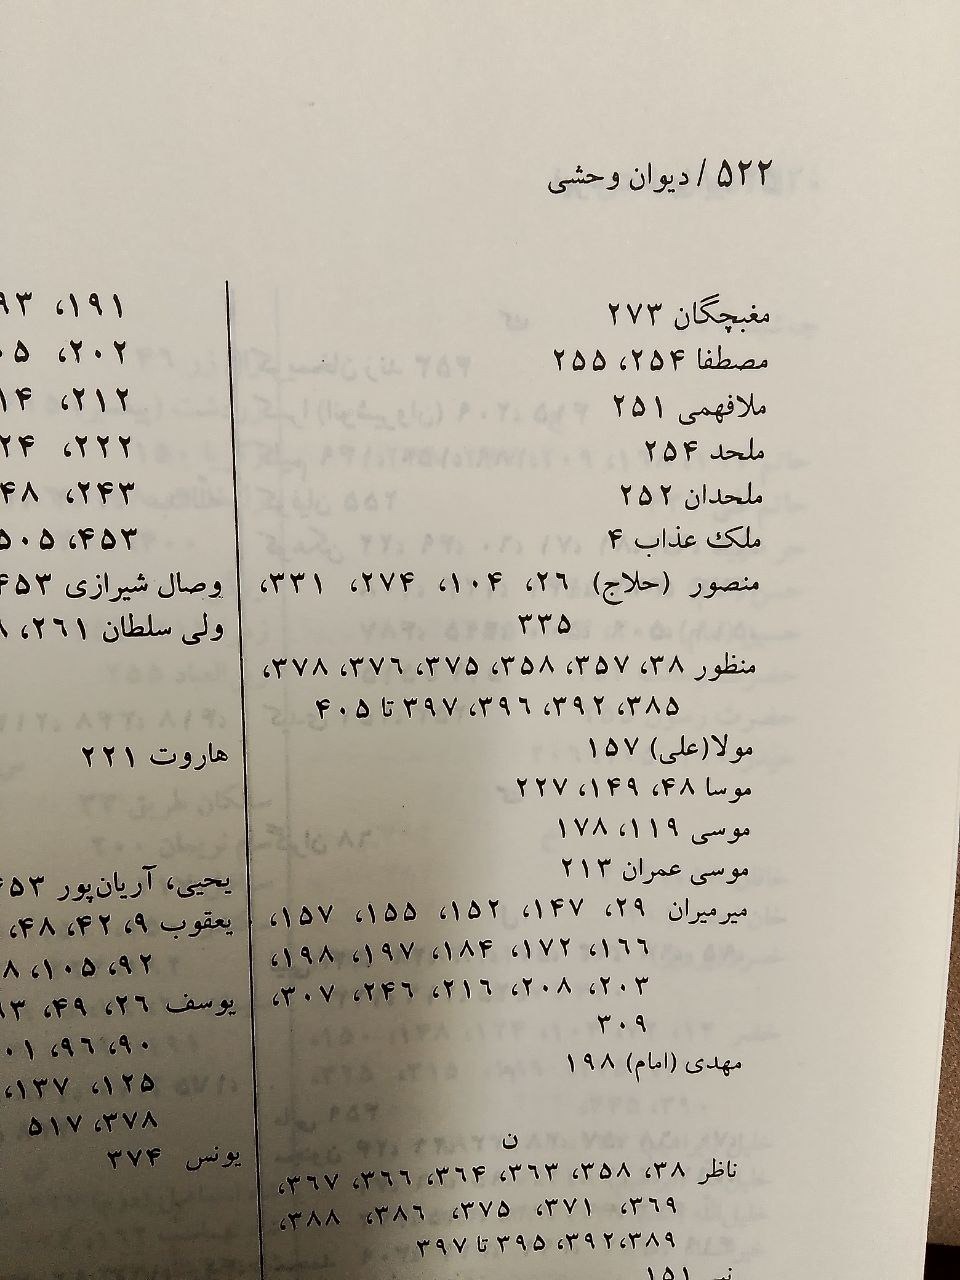 ۵۲۲ / دیوان وحشی
مغبچگان ۲۷۳
مصطفا ۲۵۴، ۲۵۵
ملافهمی ۲۵۱
ملحد ۲۵۴
ملحدان ۲۵۲
ملک عذاب ۴
منصور (حلاج) ۲۶، ۱۰۴، ۲۷۴، ۳۳۱،
۳۳۵
منظور ۳۸، ۳۵۷، ۳۵۸، ۳۷۵، ۳۷۶، ۳۷۸،
۳۸۵، ۳۹۲، ۳۹۶، ۳۹۷ تا ۴۰۵
مولا(علی) ۱۵۷
موسا ۴۸، ۱۴۹، ۲۲۷
موسی ۱۱۹، ۱۷۸
موسی عمران ۲۱۳
میرمیران ۲۹، ۱۴۷، ۱۵۲، ۱۵۵، ۱۵۷،
۱۶۶، ۱۷۲، ۱۸۴، ۱۹۷، ۱۹۸،
۲۰۳، ۲۰۸، ۲۱۶، ۲۴۶، ۳۰۷،
۳۰۹
مهدی (امام) ۱۹۸
ن
ناظر ۳۸، ۳۵۸، ۳۶۳، ۳۶۴، ۳۶۶، ۳۶۷،
۳۶۹، ۳۷۱، ۳۷۵، ۳۸۶، ۳۸۸،
۳۸۹،۳۹۲، ۳۹۵ تا ۳۹۷
۱۵۱
۱۹۱،
۲۰۲،
۲۱۲،
۲۲۲،
۲۴۳،
۴۵۳، ۵۰۵
وصال شیرازی ۴۵۳
ولی سلطان ۲۶۱،
هاروت ۲۲۱
یحیی، آریان‌پور
یعقوب ۹، ۴۲، ۴۸،
۹۲، ۱۰۵،
یوسف ۲۶، ۴۹،
۹۰، ۹۶،
۱۲۵، ۱۳۷،
۳۷۸، ۵۱۷
یونس ۳۷۴